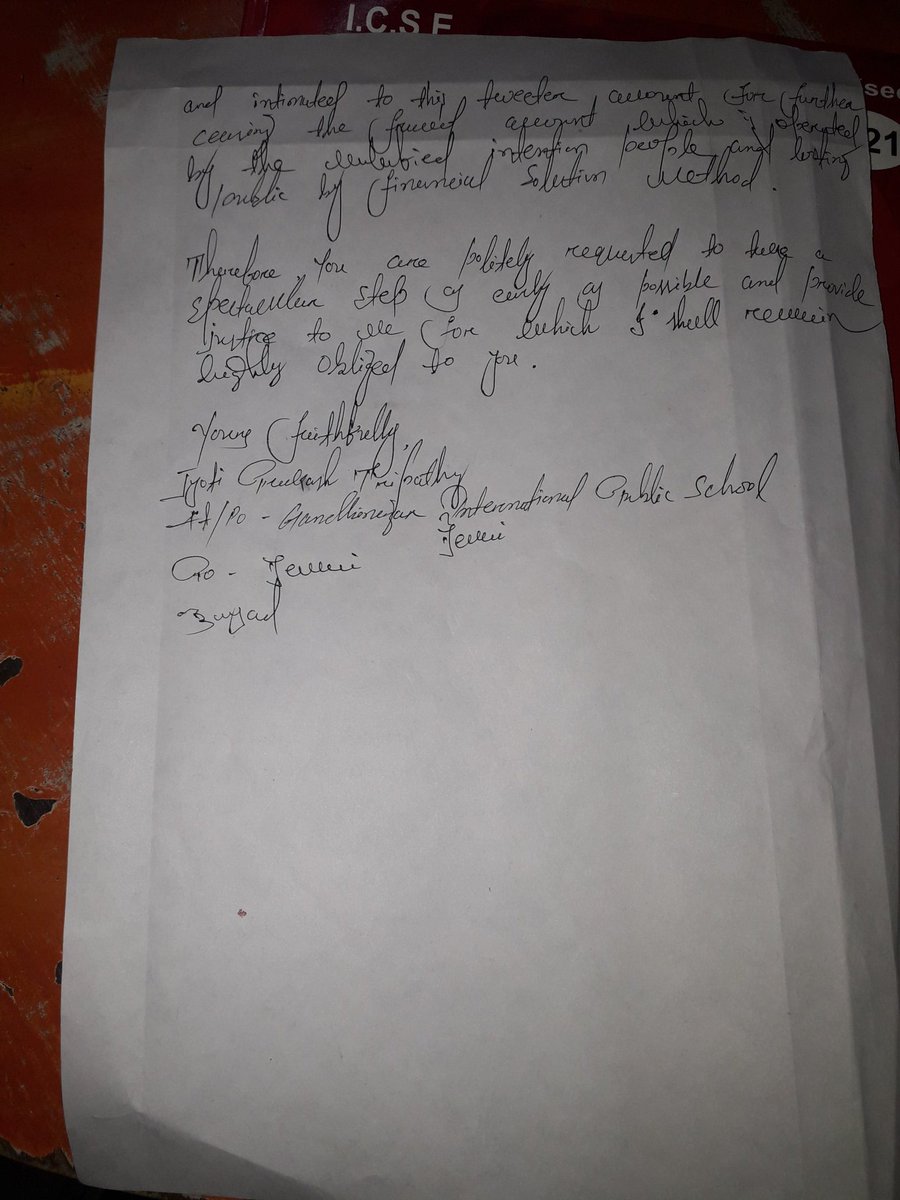 I.C.S.E
and intimated to this tweeter account for further
ceasing the fraued account which is operated
by the intention people and looting
public by financial Solution Method.
Therefore, you are politely requested to take a
spectacular step as early as possible and provide
justice to me for which I shall remain
highly oblized to you.
Yours faithfully,
Jyoti Prakash Tripathy
At/Po - Gandhinagar International Public School
Jeuni
Po - Jeuni
21